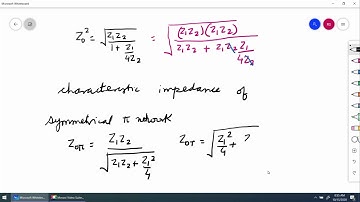 Microsoft Whiteboard
Z₀² = √(Z₁Z₂ / (1 + Z₁/4Z₂)) = √((Z₁Z₂)(Z₁Z₂) / (Z₁Z₂ + Z₁Z₂ Z₁/4Z₂))
characteristic impedance of
symmetrical π network
Z₀π = Z₁Z₂ / √(Z₁Z₂ + Z₁²/4) Z₀T = √(Z₁²/4 + Z